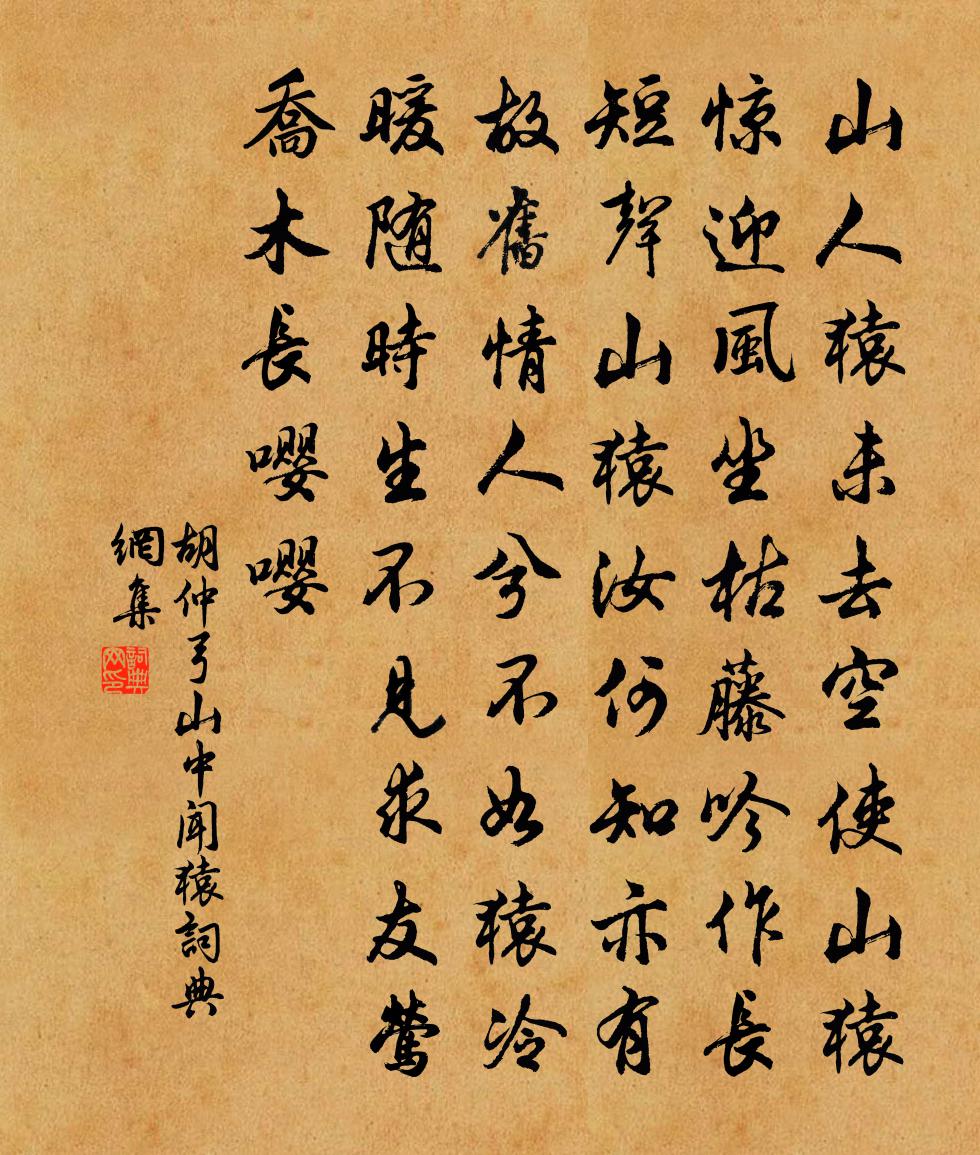 山人猿未去空使山猿
惊迎風坐枯藤吟作長
短聲山猿汝何知亦有
故舊情人兮不如猿冷
暖随時生不見求友鶯
喬木長嚶嚶
胡仲弓山中闻猿詞典
網集
詞典
网印